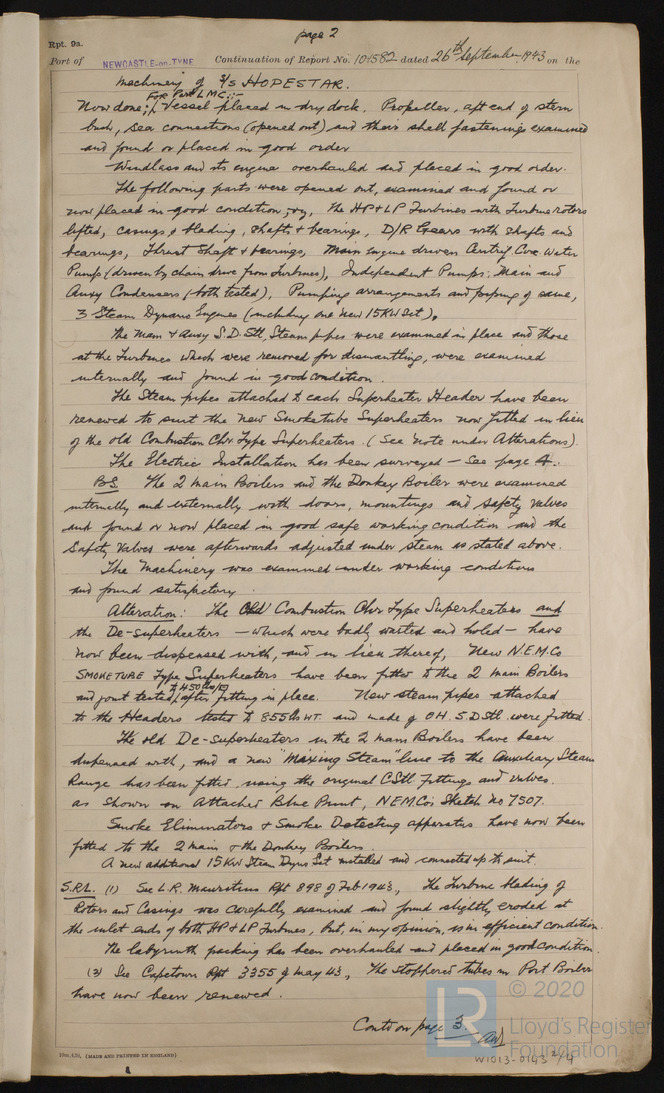 page 2
Rpt. 9a.
Port of NEWCASTLE-on-TYNE Continuation of Report No. 101582 dated 26th September 1943 on the
Machinery of S/S HOPESTAR.
FOR Part LMC:-
Now done; Vessel placed in dry dock. Propeller, aft end of stern
bush, sea connections (opened out) and their shell fastenings examined
and found or placed in good order
Windlass and its engine overhauled and placed in good order.
The following parts were opened out, examined and found or
now placed in good condition; vzy, the HP & LP Turbines with Turbine rotors
lifted, casings & blading, shafts & bearings, D/R Gears with shafts and
bearings, Thrust Shaft & bearings, Main Engine driven Centrif Circ Water
Pump (driven by chain drive from Turbines), Independent Pumps: Main and
Auxy Condensers (both tested), Pumping arrangements and piping of same,
3 Steam Dynamo Engines (including one new 15KW Set).
The Main & Auxy S.D. Stl, Steam pipes were examined in place and those
at the Turbines which were removed for dismantling, were examined
internally and found in good condition.
The Steam pipes attached to each Superheater Header have been
renewed to suit the new Smoketube Superheaters now fitted in lieu
of the old Combustion Chbr Type Superheaters. (See note under Alterations).
The Electric Installation has been surveyed — See page 4.
BS. The 2 Main Boilers and the Donkey Boiler were examined
internally and externally with doors, mountings and safety valves
and found or now placed in good safe working condition and the
Safety Valves were afterwards adjusted under steam as stated above.
The Machinery was examined under working conditions
and found satisfactory.
Alteration: The Old Combustion Chbr Type Superheaters and
the De-superheaters — which were badly wasted and holed — have
now been dispensed with, and in lieu thereof, New N.E.M.Co
SMOKETUBE Type Superheaters have been fitted to the 2 Main Boilers
and joint tested to 450 lbs/□" after fitting in place. New steam pipes attached
to the Headers tested to 855 lbs WT. and made of OH. S.D Stl. were fitted.
The old De-superheaters in the 2 main Boilers have been
dispensed with, and a new "Mixing Steam" line to the Auxiliary Steam
Range has been fitted, using the original C Stl fittings and valves.
as shown on Attached Blue Print, NEMCo's Sketch No 7507.
Smoke Eliminators & Smoke Detecting apparatus have now been
fitted to the 2 main & the Donkey Boilers.
A new additional 15KW Steam Dyno Set installed and connected up to suit.
S.R.L. (1) See L.R. Mauritius Rpt 898 of Feb 1943, The Turbine blading of
Rotors and Casings was carefully examined and found slightly eroded at
the inlet ends of both HP & LP Turbines, but, in my opinion, is in efficient condition.
The labyrinth packing has been overhauled and placed in good condition.
(2) See Capetown Rpt 3355 of May 43, The stoppered tubes in Port Boiler
have now been renewed.
Contd on page
© 2020
LR Lloyd's Register
Foundation
(MADE AND PRINTED IN ENGLAND)
W1013-0143 2/4